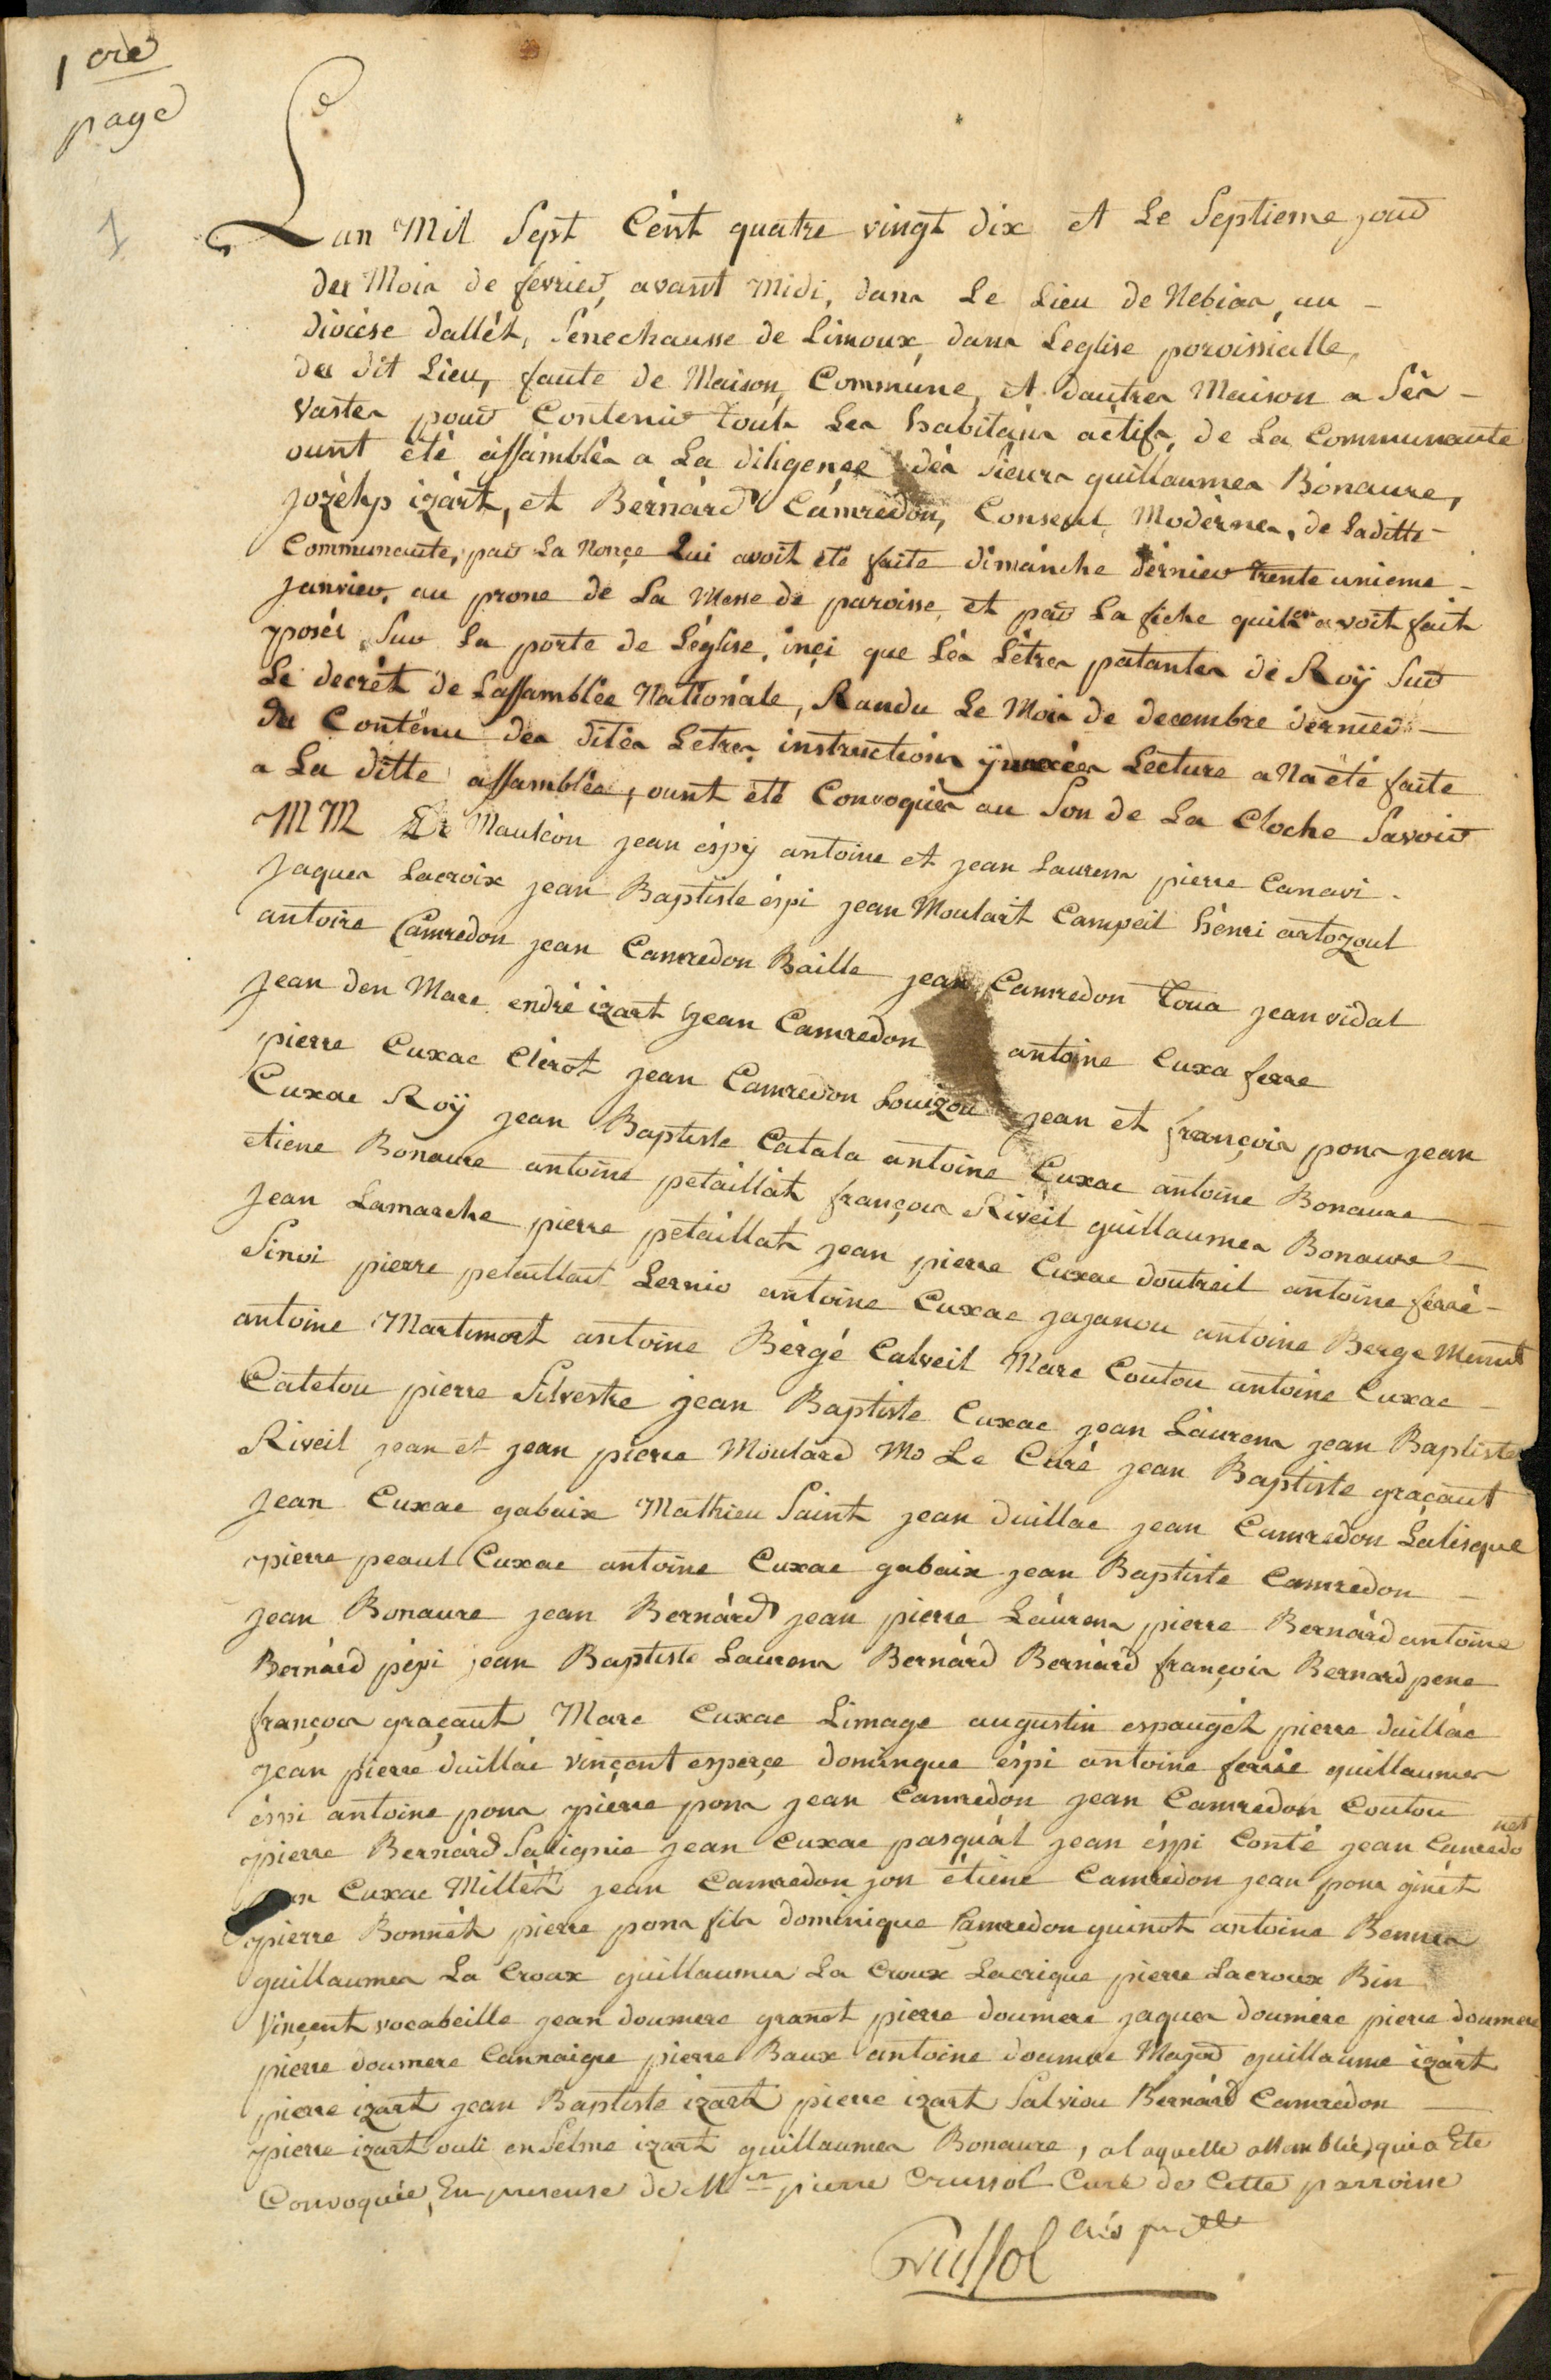 1ere
page
1
Lan Mil Sept Cent quatre vingt dix et Le Septieme jour
du Mois de fevrier, avant Midi, dans Le Lieu de Nebias, au
diocese dallét, Senechausse de Limoux, dans Leglise poroissialle,
du dit Lieu, faute de Maison, Commune, et dautres Maison a Sés
Vastes pour Contenir touts Les habitans actifs, de La Communaute
ount été assamblés a La diligence dés sieurs guillaumes Bonaure,
jozèhp izart, et Bérnárd Camredon, Consuls Modèrnes, de Laditte
Communaute, par La Nonçe Lui avoit été faite dimanche dérnier trente unieme
janvier, au prone de La Messe de paroisse, et par La fiche quils en avoit fait
yposér, Sur La porte de Léglise, inçi que Lés Létres patantes de Roÿ Sur
Le decrét de Lassamblée Nationale, Randu Le Mois de decembre dernier
du Conténu des dités Letres instructions ÿ Lecture a Na été faite
a La ditte assamblés, ount été Convoqués au Son de La Cloche Savoir
MM De Mauléon jean éspÿ antoine et jean Laurens pierre Canavi
jaques Lacroix jean Baptiste éspi jean Moulart Campeil hénri artozoul
antoire Camredon jean Camredon Baille jean Camredon Toua jean vidal
jean den Marc endré izart jean Camredon antoine Cuxa ferre
pierre Cuxac Clérot jean Camredon Louizou jean et françois pons jean
Cuxac Roÿ jean Baptiste Catala antoine Cuxac antoine Bonaure
etiene Bonaure antoine petaillat françois Riveil guillaumes Bonaure
jean Lamarche pierre petaillat jean pierre Cuxac doutreil antoine ferré
Sinoi pierre petaillat Lernio antoine Cuxac jajanou antoine Berge Menut
antoine Martimort antoine Bérgé Calveil Marc Coutou antoine Cuxac
Catetou pierre Silvestre jean Baptiste Cuxac jean Laurens jean Baptiste
Riveil jean et jean pierre Moulard Mr Le Curé jean Baptiste graçaut
jean Cuxac gabaix Mathieu Saint jean duillac jean Camredon Lalisque
pierre peaul Cuxac antoine Cuxac gabaix jean Baptiste Camredon
jean Bonaure jean Bernárd jean pierre Laurens pierre Bernárd antoine
Bernárd pépi jean Baptiste Laurens Bernárd Bernárd françois Bernard pene
françois graçaut Marc Cuxac Limage augustin espaugét pierre duillác
jean pierre duillác vinçent esperçe dominque éspi antoine ferrié guillaumes
éspi antoine pons pierre pons jean Camredon jean Camredon Coutou
pierre Bernárd Salignie jean Cuxac pasquál jean éspi Conté jean Camredo
net
Cuxac Millét jean Camredon jon étiene Camredon jean pons ginét
pierre Bonnét pierre pons fils dominique Camredon guinot antoine Bennes
guillaumes La Croux guillaumes La Croux Lacrique pierre Lacroux Bin
Vinçent vocabeille jean doumerc granot pierre doumerc jaques doumerc pierre doumerc
pierre doumerc Cannaigre pierre Baux antoine doumerc Majou guillaume izárt
pierre izart jean Baptiste izart pierre izart Salviou Bernárd Camredon
pierre izart enselme izart guillaumes Bonaure, alaquelle assemblée, qui a Eté
Convoquée, En presence de Mre pierre Crussol Curé de Cette parroisse
Crussol